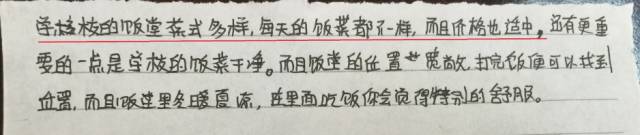 学校的饭堂菜式多样,每天的饭菜都不一样,而且价格也适中。还有更重
要的一点是学校的饭菜干净。而且饭堂的位置也宽敞,打完饭便可以找到
位置,而且饭堂里冬暖夏凉,在里面吃饭你会觉得特别的舒服。